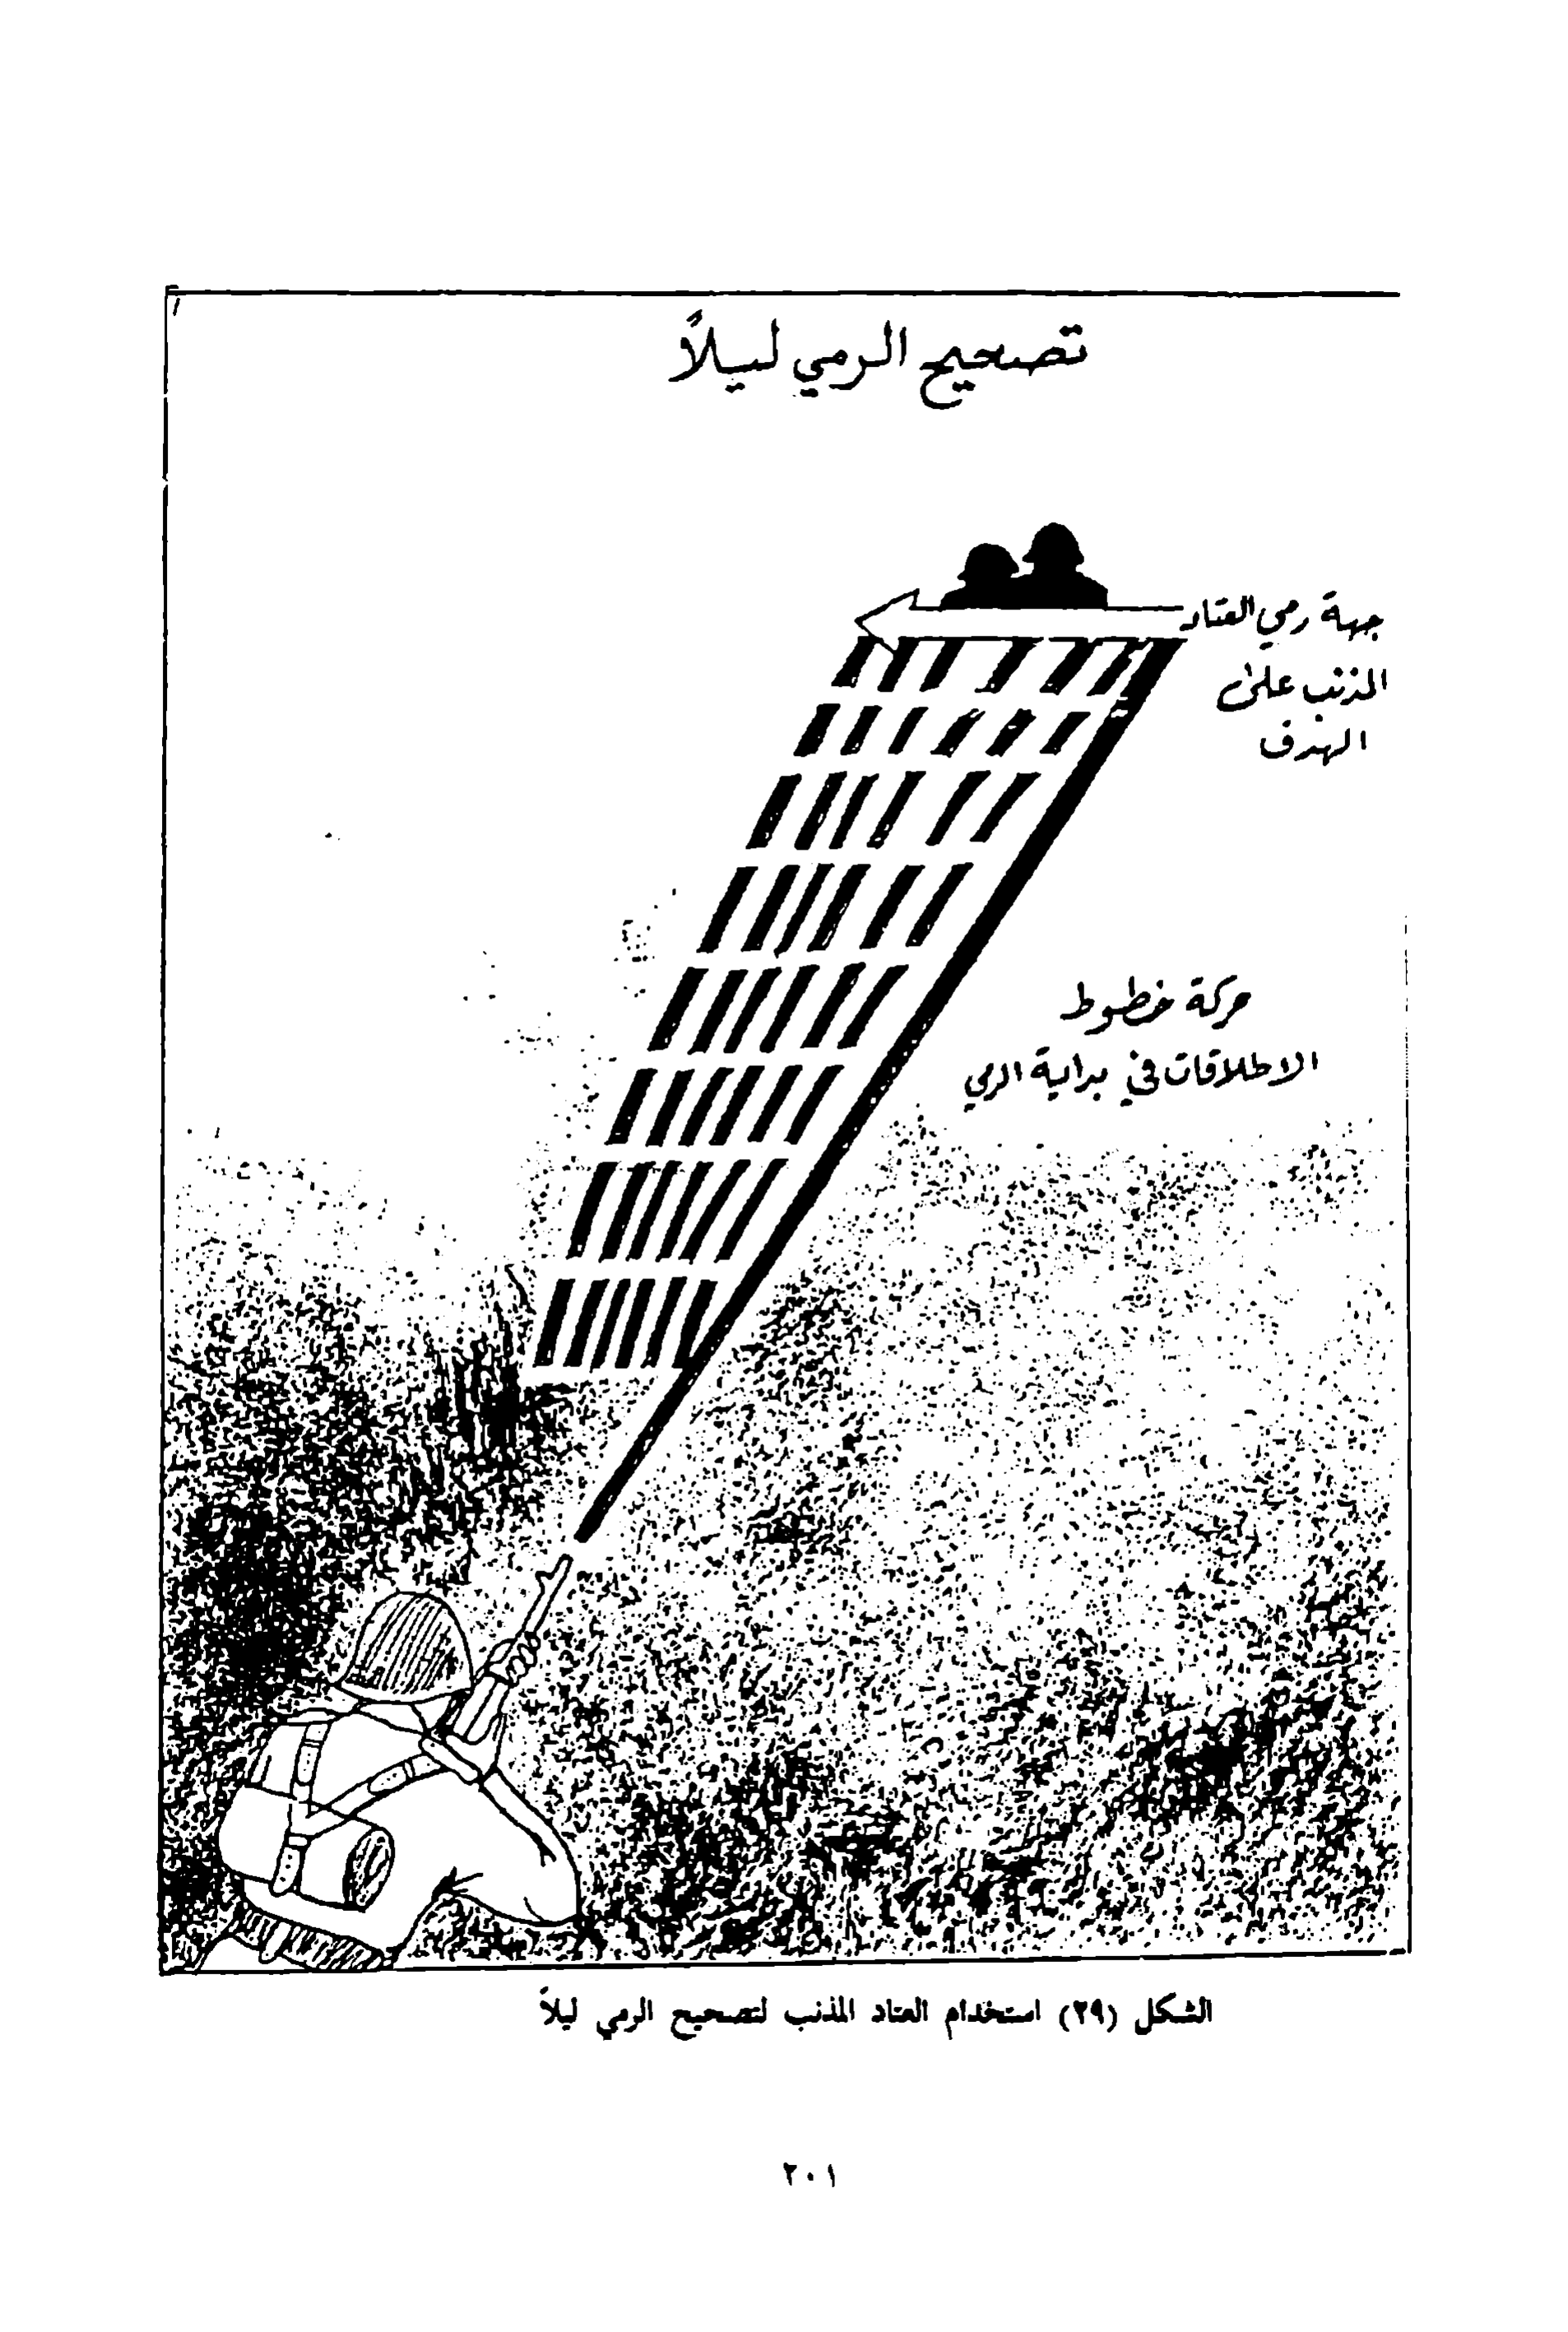 تصحيح الرمي ليلاً
جهة رمي العتاد
المذنب على
الهدف
حركة خطوط
الاطلاقات في بداية الرمي
الشكل (٢٩) استخدام العتاد المذنب لتصحيح الرمي ليلاً
٢٠١